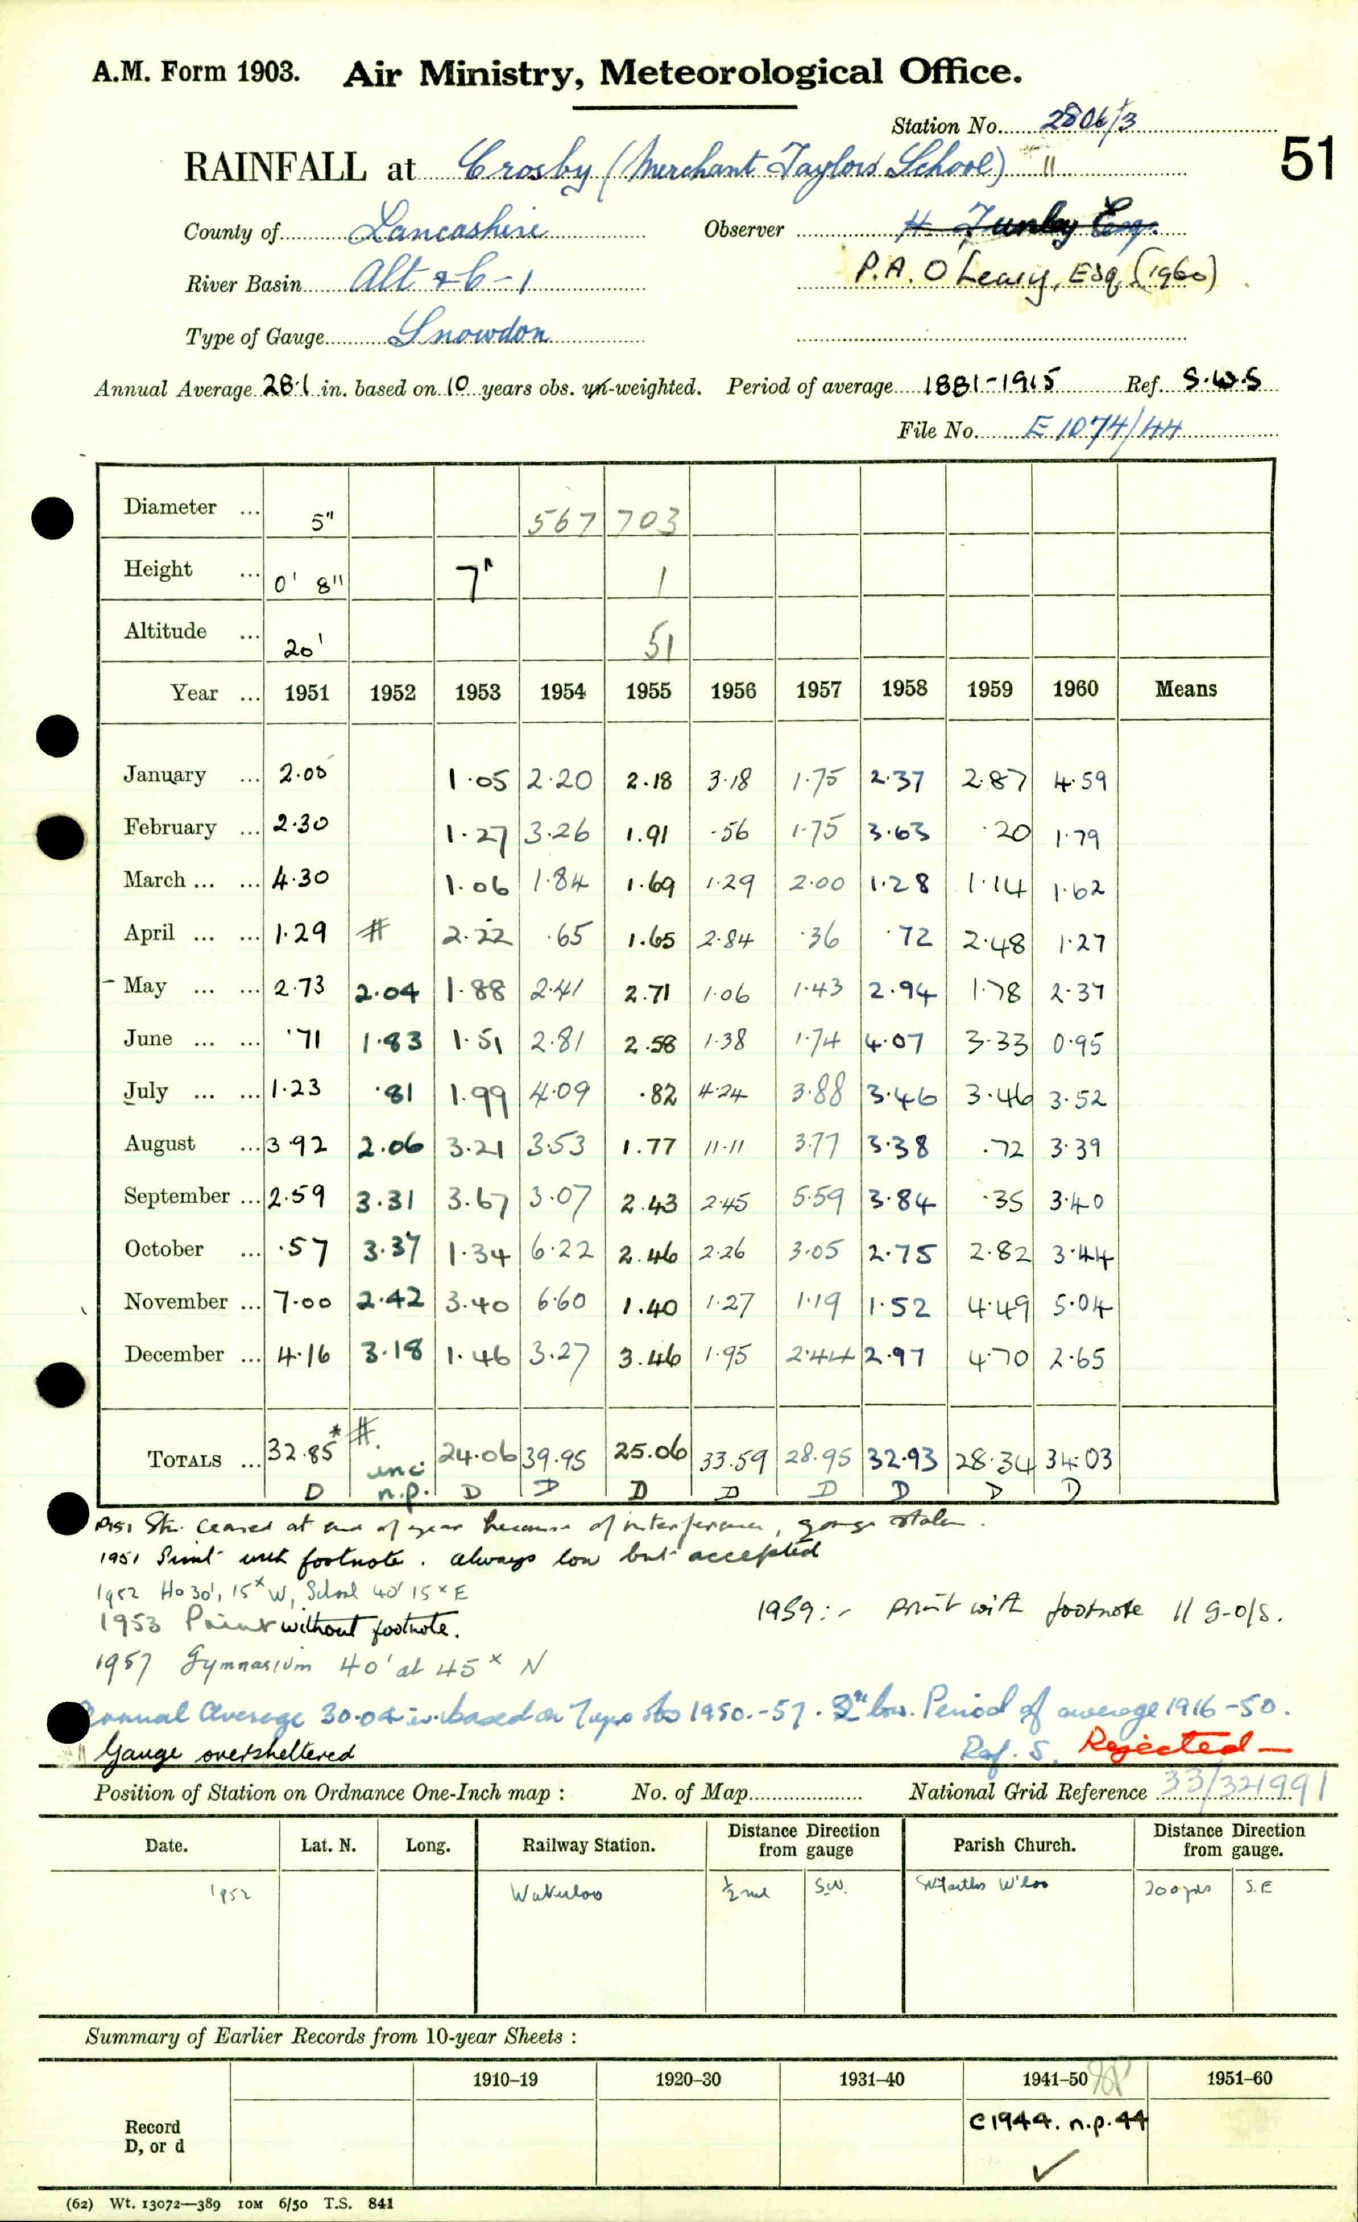 A.M. Form 1903. Air Ministry, Meteorological Office.
Station No. 2806/3
RAINFALL at Crosby (Merchant Taylors School) "
51
County of Lancashire Observer H. Tunley Esq.
River Basin Alt & C-1 P.A. O'Leary, Esq (1960)
Type of Gauge Snowdon
Annual Average 28.1 in. based on 10 years obs. un-weighted. Period of average 1881-1915 Ref. S.W.S
File No. E 1074/44
Diameter ... 5" 567 703
Height ... 0' 8" 7" 1
Altitude ... 20' 51
Year ... 1951 1952 1953 1954 1955 1956 1957 1958 1959 1960 Means
January ... 2.05 1.05 2.20 2.18 3.18 1.75 2.37 2.87 4.59
February ... 2.30 1.27 3.26 1.91 .56 1.75 3.63 .20 1.79
March ... ... 4.30 1.06 1.84 1.69 1.29 2.00 1.28 1.14 1.62
April ... ... 1.29 # 2.22 .65 1.65 2.84 .36 .72 2.48 1.27
May ... ... 2.73 2.04 1.88 2.41 2.71 1.06 1.43 2.94 1.78 2.37
June ... ... .71 1.83 1.51 2.81 2.58 1.38 1.74 4.07 3.33 0.95
July ... ... 1.23 .81 1.99 4.09 .82 4.24 3.88 3.46 3.46 3.52
August ... 3.92 2.06 3.21 3.53 1.77 11.11 3.77 3.38 .72 3.39
September ... 2.59 3.31 3.67 3.07 2.43 2.45 5.59 3.84 .35 3.40
October ... .57 3.37 1.34 6.22 2.46 2.26 3.05 2.75 2.82 3.44
November ... 7.00 2.42 3.40 6.60 1.40 1.27 1.19 1.52 4.49 5.04
December ... 4.16 3.18 1.46 3.27 3.46 1.95 2.44 2.97 4.70 2.65
TOTALS ... 32.85* # inc 24.06 39.95 25.06 33.59 28.95 32.93 28.34 34.03
D n.p. D D D D D D D D
1951 Stn. ceased at end of year because of interference, gauge stolen.
1951 Print with footnote. always low but accepted
1952 Ho 30', 15x W, School 40' 15x E
1953 Print without footnote. 1959:- print with footnote 11 g-o/s.
1957 Gymnasium 40' at 45x N
Annual Average 30.04 in. based on 7 yrs obs 1950-57. low. Period of average 1916-50.
" Gauge oversheltered Ref. S. Rejected
Position of Station on Ordnance One-Inch map : No. of Map National Grid Reference 33/321991
Date. Lat. N. Long. Railway Station. Distance Direction from gauge Parish Church. Distance Direction from gauge.
1952 Waterloo ½ ml S.W. St Faiths W'loo 200 yds S.E
Summary of Earlier Records from 10-year Sheets :
1910–19 1920–30 1931–40 1941–50 1951–60
Record D, or d C1944. n.p. 44
✓
(62) Wt. 13072—389 10M 6/50 T.S. 841